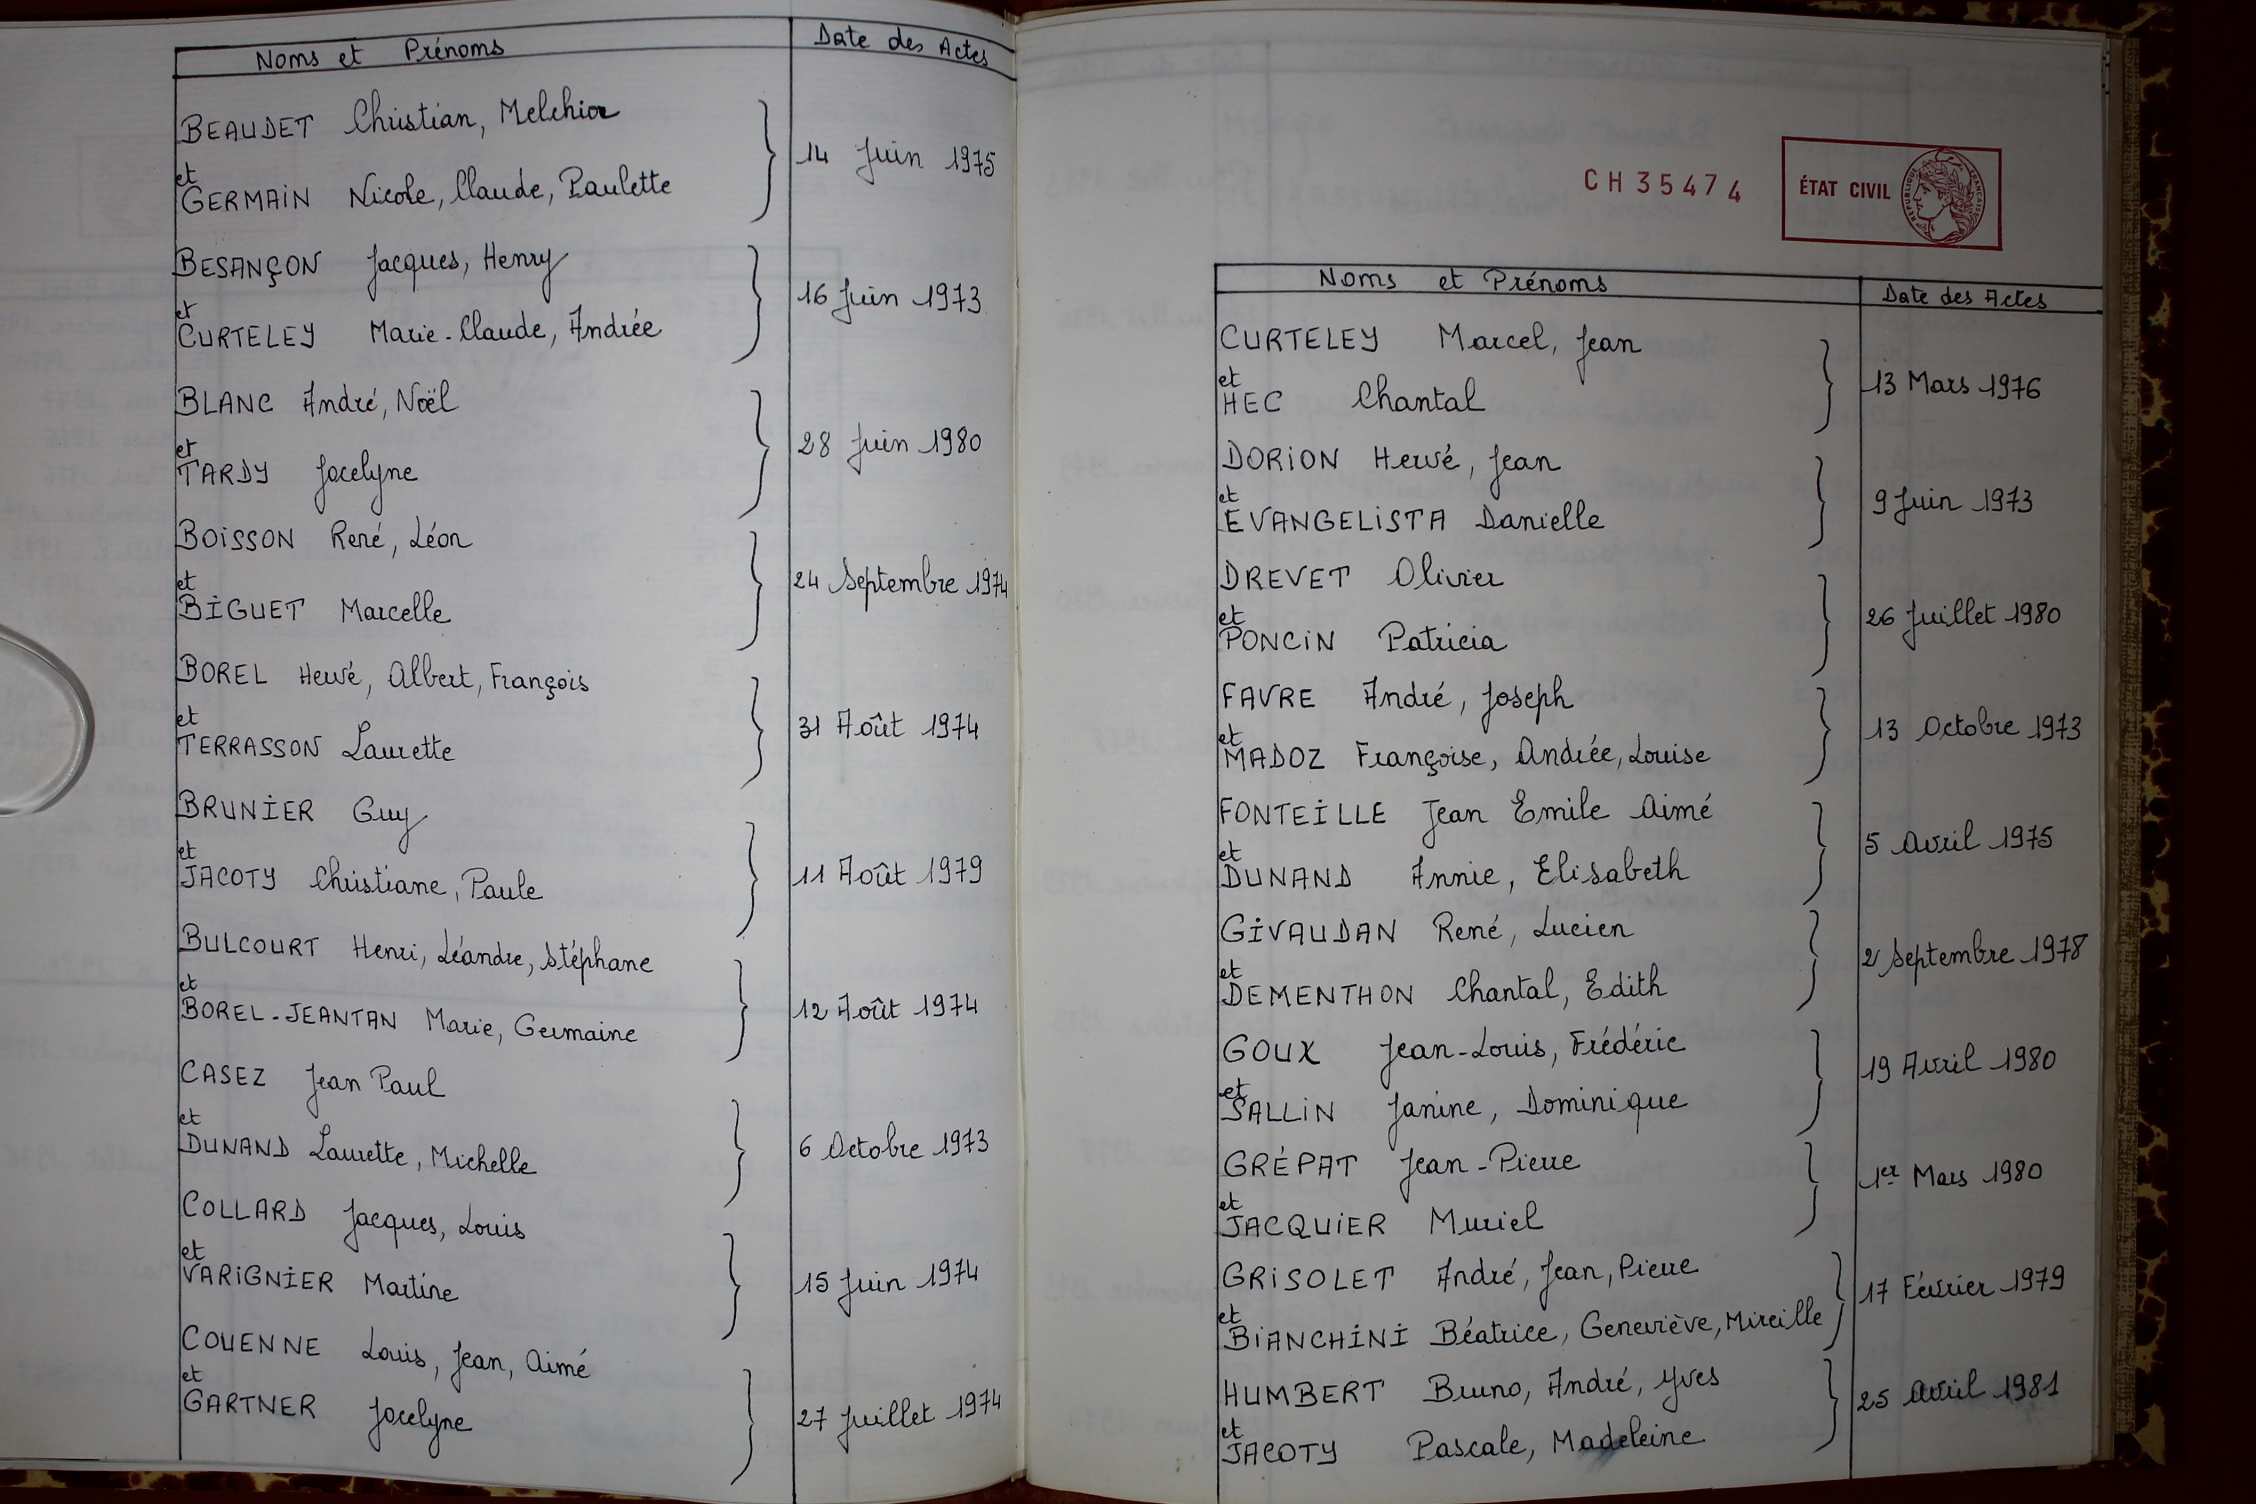 Noms et Prénoms
Date des Actes
BEAUDET Christian, Melchior
et
GERMAIN Nicole, Claude, Paulette
14 Juin 1975
BESANÇON Jacques, Henry
et
CURTELEY Marie-Claude, Andrée
16 Juin 1973
BLANC André, Noël
et
TARDY Jocelyne
28 Juin 1980
BOISSON René, Léon
et
BIGUET Marcelle
24 Septembre 1974
BOREL Hervé, Albert, François
et
TERRASSON Laurette
31 Août 1974
BRUNIER Guy
et
JACOTY Christiane, Paule
11 Août 1979
BULCOURT Henri, Léandre, Stéphane
et
BOREL-JEANTAN Marie, Germaine
12 Août 1974
CASEZ Jean Paul
et
DUNAND Laurette, Michelle
6 Octobre 1973
COLLARD Jacques, Louis
et
VARIGNIER Martine
15 Juin 1974
COUENNE Louis, Jean, Aimé
et
GARTNER Jocelyne
27 Juillet 1974
CH35474
ÉTAT CIVIL
RÉPUBLIQUE FRANÇAISE
Noms et Prénoms
Date des Actes
CURTELEY Marcel, Jean
et
HEC Chantal
13 Mars 1976
DORION Hervé, Jean
et
EVANGELISTA Danielle
9 Juin 1973
DREVET Olivier
et
PONCIN Patricia
26 Juillet 1980
FAVRE André, Joseph
et
MADOZ Françoise, Andrée, Louise
13 Octobre 1973
FONTEILLE Jean Emile Aimé
et
DUNAND Annie, Elisabeth
5 Avril 1975
GIVAUDAN René, Lucien
et
DEMENTHON Chantal, Edith
2 Septembre 1978
GOUX Jean-Louis, Frédéric
et
SALLIN Janine, Dominique
19 Avril 1980
GRÉPAT Jean-Pierre
et
JACQUIER Muriel
1er Mars 1980
GRISOLET André, Jean, Pierre
et
BIANCHINI Béatrice, Geneviève, Mireille
17 Février 1979
HUMBERT Bruno, André, Yves
et
JACOTY Pascale, Madeleine
25 Avril 1981